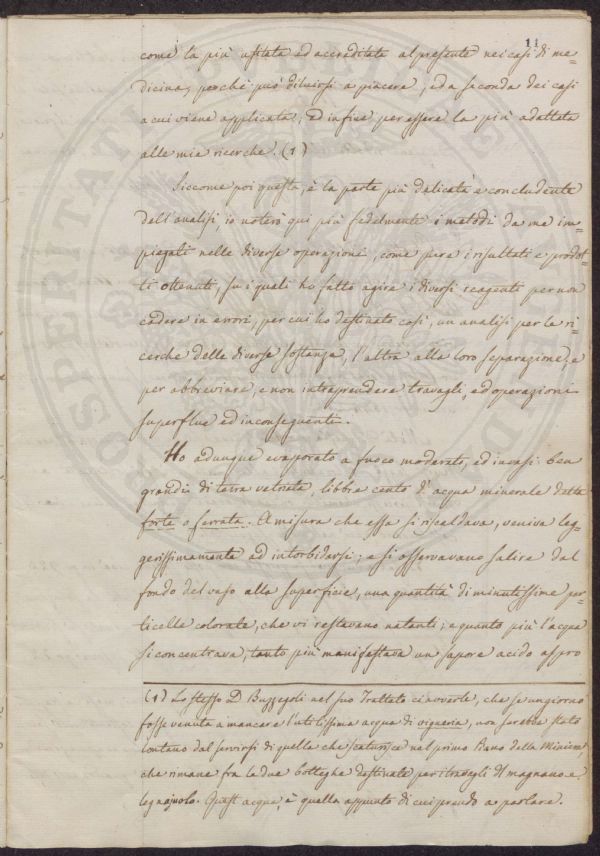 11
come la più usitata ed accreditata al presente nei casi di me=
dicina, perchè può diluirsi a piacere, ed a seconda dei casi
a cui viene applicata, ed infine per essere la più adattata
alle mie ricerche. (1)
Siccome poi questa, è la parte più dalicata e concludente
dell'analisi, io noterò qui più fedelmente i metodi da me im=
piegati nelle diverse operazioni, come pure i risultati e prodot=
ti ottenuti, su i quali ho fatto agire i diversi reagenti per non
cadere in errori, per cui ho destinato così, un analisi per la ri=
cerche delle diverse sostanze, l'altra alla loro separazione, e
per abbreviare, e non intraprendere travagli, ed operazioni
superflue ed inconseguenti.
Ho adunque evaporato a fuoco moderato, ed in vasi ben
grandi di terra vetriata, libbre cento d'acqua minerale detta
forte o ferrata. A misura che essa si riscaldava, veniva leg=
gerissimamente ad intorbidarsi; e si osservavano salire dal
fondo del vaso alla superficie, una quantità di minutissime par=
ticelle colorate, che vi restavano natanti; e quanto più l'acqua
si concentrava, tanto più manifestava un sapore acido aspro
(1) Lo stesso D Buzzegoli nel suo Trattato ci avverte, che se un giorno
fosse venuta a mancare l'utilissima acqua di vigneria, non sarebbe stato
lontano dal servirsi di quella che scaturisce nel primo Bano della Miniera,
che rimane fra le due botteghe destinate per i travagli di magnano e
legnajuolo. Quest'acqua, è quella appunto di cui prendo a parlare.